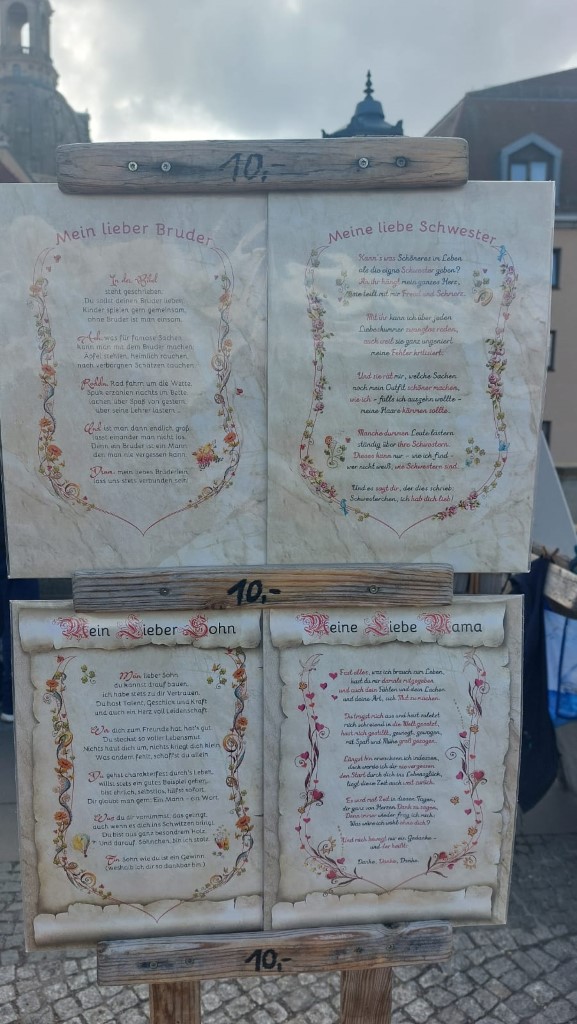 10,-
Mein lieber Bruder
In der Bibel
steht geschrieben:
Du sollst deinen Bruder lieben,
Kinder spielen gern gemeinsam,
ohne Bruder ist man einsam.
Ach, was für famose Sachen
kann man mit dem Bruder machen:
Äpfel stehlen, heimlich rauchen,
nach verborgnen Schätzen tauchen.
Radeln, Rad fahrn um die Wette,
Spuk erzählen nachts im Bette
lachen über Spaß von gestern
über seine Lehrer lästern...
Und ist man dann endlich groß,
lässt einander man nicht los.
Denn ein Bruder ist ein Mann,
den man nie vergessen kann.
Drum, mein liebes Brüderlein,
lass uns stets verbunden sein!
Meine liebe Schwester
Kann's was Schöneres im Leben
als die eigne Schwester geben?
An ihr hängt mein ganzes Herz,
sie teilt mit mir Freud und Schmerz.
Mit ihr kann ich über jeden
Liebeskummer zwanglos reden,
auch weil sie ganz ungeniert
meine Fehler kritisiert.
Und sie rät mir, welche Sachen
noch mein Outfit schöner machen,
wie ich - falls ich ausgehn wollte -
meine Haare kämmen sollte.
Manche dummen Leute lästern
ständig über ihre Schwestern.
Dieses kann nur - wie ich find -
wer nicht weiß, was Schwestern sind.
Und es sagt dir, der dies schrieb:
Schwesterchen, ich hab dich lieb!
10,-
Mein Lieber Sohn
Mein lieber Sohn,
du kannst drauf bauen,
ich habe stets zu dir Vertrauen.
Du hast Talent, Geschick und Kraft
und auch ein Herz voll Leidenschaft.
Wer dich zum Freunde hat, hat's gut.
Du steckst so voller Lebensmut.
Nichts haut dich um, nichts kriegt dich hin,
Was andern fehlt, schaffst du allein.
Du gehst charakterfest durch's Leben,
willst stets ein gutes Beispiel geben,
bist ehrlich, selbstlos, hilfst sofort.
Dir glaubt man gern: Ein Mann - ein Wort.
Was du dir vornimmst, das gelingt,
auch wenn es dich ins Schwitzen bringt.
Du bist aus ganz besonderm Holz
und darauf, Söhnchen, bin ich stolz.
Ein Sohn wie du ist ein Gewinn.
(weshalb ich dir so dankbar bin.)
Meine Liebe Mama
Fast alles, was ich brauch zum Leben,
hast du mir damals mitgegeben
und auch dein Fühlen und dein Lachen
und deine Art, uns Mut zu machen.
Du trugst mich aus und hast zuletzt
mich schreiend in die Welt gesetzt,
hast mich gestillt, gewiegt, gewogen,
mit Spaß und Mühe groß gezogen.
Längst bin erwachsen ich indessen,
doch werde ich dir nie vergessen
den Start durch dich ins Lebensglück,
liegt diese Zeit auch weit zurück.
Es wird mal Zeit in diesen Tagen,
dir ganz von Herzen Dank zu sagen,
Denn immer wieder frag ich mich:
Was wäre ich wohl ohne dich?
Und mich bewegt nur ein Gedanke -
und der heißt:
Danke, Danke, Danke.
10,-